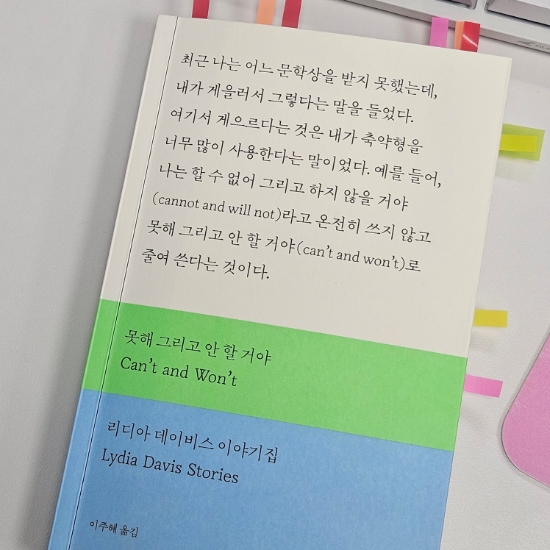 최근 나는 어느 문학상을 받지 못했는데,
내가 게을러서 그렇다는 말을 들었다.
여기서 게으르다는 것은 내가 축약형을
너무 많이 사용한다는 말이었다. 예를 들어,
나는 할 수 없어 그리고 하지 않을 거야
(cannot and will not)라고 온전히 쓰지 않고
못해 그리고 안 할 거야(can't and won't)로
줄여 쓴다는 것이다.
못해 그리고 안 할 거야
Can't and Won't
리디아 데이비스 이야기집
Lydia Davis Stories
이주혜 옮김